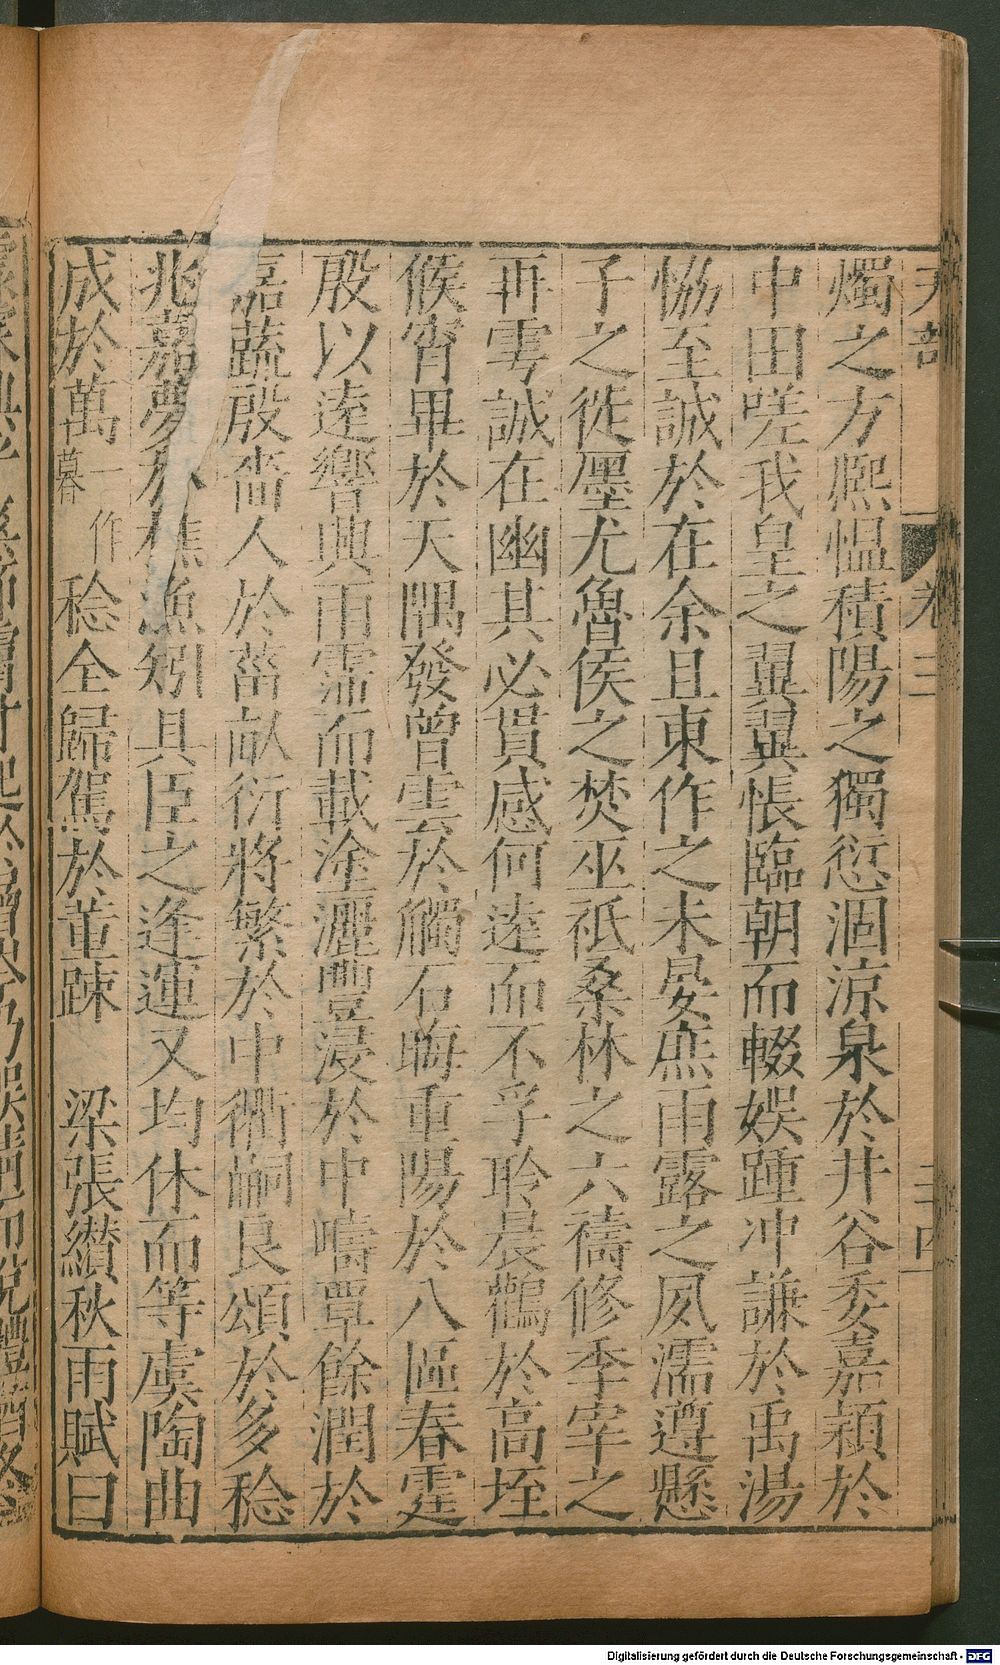 燭之方熈愠積陽之獨愆涸涼泉於井谷委嘉穎於
中田嗟我皇之翼翼悵臨朝而輟娛踵冲謙於禹湯
恊至誠於在余且東作之未晏庶雨露之夙濡遵懸
子之徙㕓尤魯侯之焚巫祇桑林之六禱修季宰之
再雩誠在幽其必貫感何逺而不孚聆晨鸛於高垤
候宵畢於天隅發曽雲於觸石晦重陽於八區春霆
殷以逺響興雨霈而載塗灑豐浸於中疇覃餘潤於
嘉蔬殷嗇人於菑畝衍將繁於中衢嗣良頌於多稔
兆嘉夢於樵漁矧具臣之逢運又均休而等虞陶曲
成於萬一作暮稔全歸駕於董踈 梁張纉秋雨賦曰
天部
卷三
三四
Digitalisierung gefördert durch die Deutsche Forschungsgemeinschaft - DFG